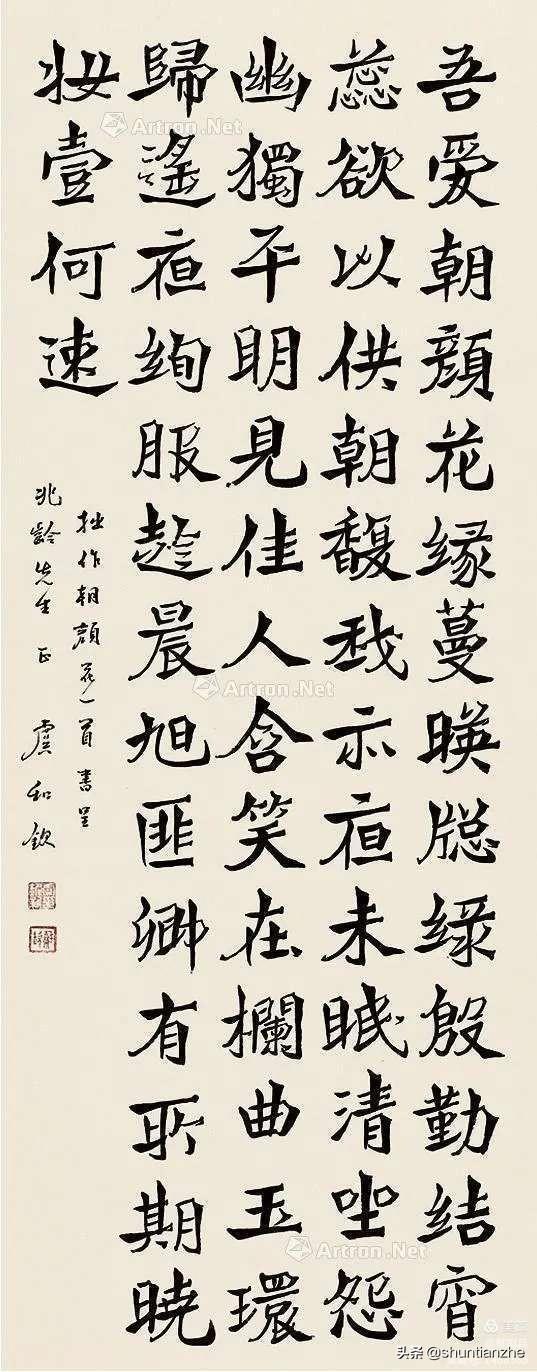 吾愛朝顏花緣蔓暎牕綠殷勤結宵
蕊欲以供朝馥我亦夜未眠清坐怨
幽獨平明見佳人含笑在欄曲玉環
歸遙夜絢服趁晨旭匪卿有所期曉
妝壹何速
拙作朝顏花一首書呈
兆齡先生正 虞和欽
Artron.Net
Artron.Net
Artron.Net
Artron.Net
头条 @shuntianzhe